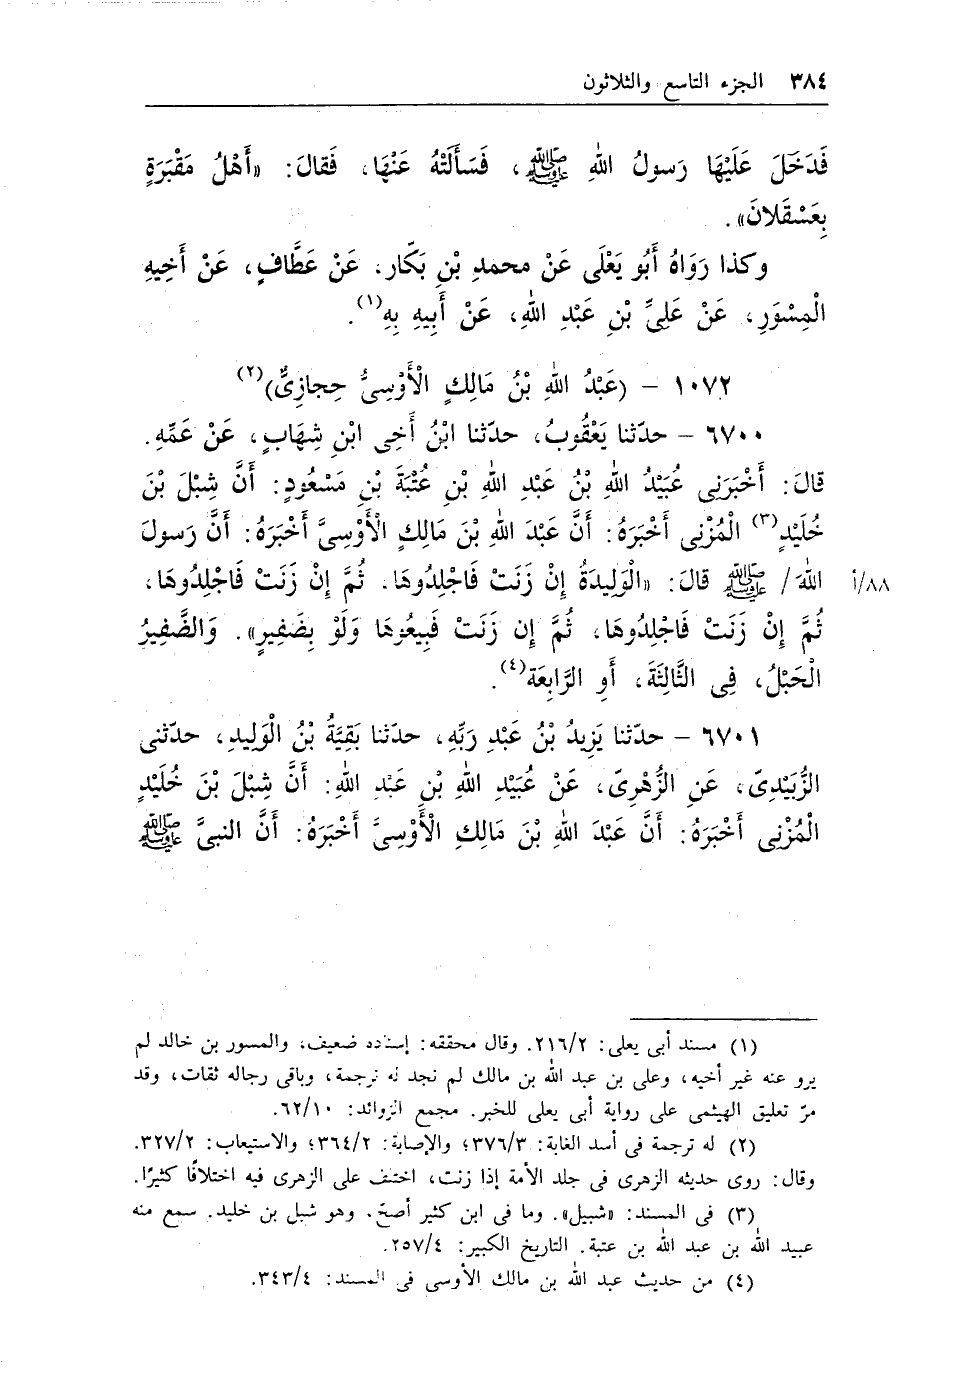 ٣٨٤ الجزء التاسع والثلاثون
فَدَخَلَ عَلَيْهَا رَسولُ اللهِ ﷺ، فَسَأَلَتْهُ عَنْهَا، فَقالَ: «أَهْلُ مَقْبَرَةٍ
بِعَسْقَلانَ».
وكذا رَوَاهُ أَبُو يَعْلَى عَنْ محمدِ بْنِ بَكّار، عَنْ عَطَّافٍ، عَنْ أَخِيهِ
الْمِسْوَرِ، عَنْ عَلِىِّ بْنِ عَبْدِ اللهِ، عَنْ أَبِيهِ بِهِ(١).
١٠٧٢ – (عَبْدُ اللهِ بْنُ مَالِكٍ الْأَوْسِىُّ حِجازِىٌّ)(٢)
٦٧٠٠ – حدّثنا يَعْقُوبُ، حدّثنا ابْنُ أَخِى ابْنِ شِهَابٍ، عَنْ عَمِّهِ.
قَالَ: أَخْبَرَنِى عُبَيْدُ اللهِ بْنُ عَبْدِ اللهِ بْنِ عُتْبَةَ بْنِ مَسْعُودٍ: أَنَّ شِبْلَ بْنَ
خُلَيْدٍ(٣) الْمُزْنِى أَخْبَرَهُ: أَنَّ عَبْدَ اللهِ بْنَ مَالِكٍ الْأَوْسِىَّ أَخْبَرَهُ: أَنَّ رَسولَ
٨٨/أ اللهَ/ ﷺ قَالَ: «الْوَلِيدَةُ إِنْ زَنَتْ فَاجْلِدُوهَا. ثُمَّ إِنْ زَنَتْ فَاجْلِدُوهَا،
ثُمَّ إِنْ زَنَتْ فَاجْلِدُوهَا، ثُمَّ إِن زَنَتْ فَبِيعُوهَا وَلَوْ بِضَفِيرٍ». وَالضَّفِيرُ
الْحَبْلُ، فِى الثَّالِثَةَ، أَوِ الرَّابِعَة(٤).
٦٧٠١ – حدّثنا يَزِيدُ بْنُ عَبْدِ رَبِّهِ، حدّثنا بَقِيَّةُ بْنُ الْوَلِيدِ، حدّثنى
الزُّبَيْدِىّ، عَنِ الزُّهْرِىّ، عَنْ عُبَيْدِ اللهِ بْنِ عَبْدِ اللهِ: أَنَّ شِبْلَ بْنَ خُلَيْدٍ
الْمُزْنِى أَخْبَرَهُ: أَنَّ عَبْدَ اللهِ بْنَ مَالِكِ الْأَوْسِىَّ أَخْبَرَهُ: أَنَّ النبىَّ ﷺ
(١) مسند أبى يعلى: ٢١٦/٢. وقال محققه: إسناده ضعيف، والمسور بن خالد لم
يرو عنه غير أخيه، وعلى بن عبد الله بن مالك لم نجد له ترجمة، وباقى رجاله ثقات، وقد
مرّ تعليق الهيثمى على رواية أبى يعلى للخبر. مجمع الزوائد: ٦٢/١٠.
(٢) له ترجمة فى أسد الغابة: ٣٧٦/٣؛ والإصابة: ٣٦٤/٢؛ والاستيعاب: ٣٢٧/٢.
وقال: روى حديثه الزهرى فى جلد الأمة إذا زنت، اختلف على الزهرى فيه اختلافًا كثيرًا.
(٣) فى المسند: «شبيل». وما فى ابن كثير أصحّ. وهو شبل بن خليد. سمع منه
عبيد الله بن عبد الله بن عتبة. التاريخ الكبير: ٢٥٧/٤.
(٤) من حديث عبد الله بن مالك الأوسى فى المسند: ٣٤٣/٤.